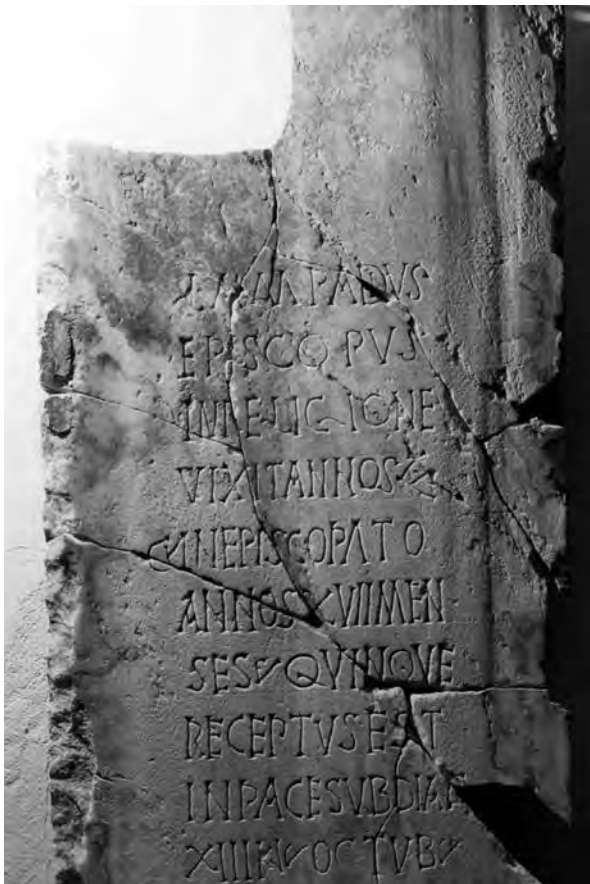 EPISCOPVS
INRELIGIONE
VIXITANNOS
INEPISCOPATO
ANNOSXVIIMEN
SESQVINQVE
RECEPTVSEST
INPACESVBDIAE
XIIIKOCTVB